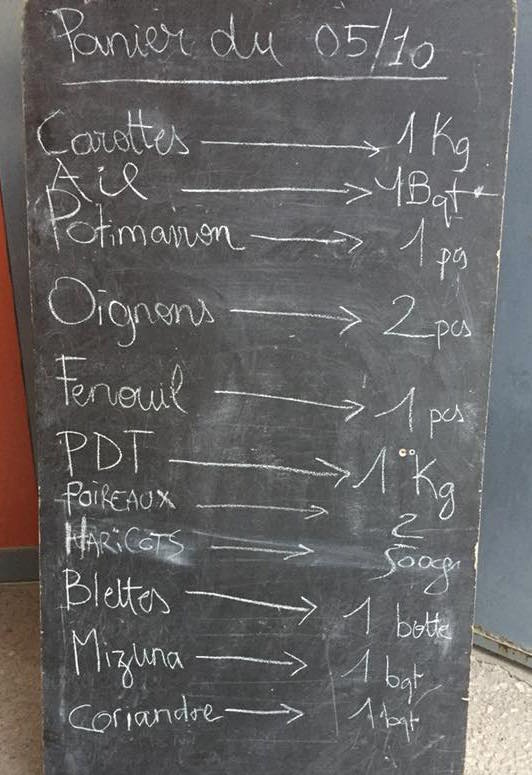 Panier du 05/10
Carottes → 1 Kg
Ail → 1 Bqt
Potimarron → 1 pcs
Oignons → 2 pcs
Fenouil → 1 pcs
PDT → 1 Kg
POIREAUX → 2
HARiCOTS → 500gr
Blettes → 1 botte
Mizuna → 1 bqt
Coriandre → 1 bqt